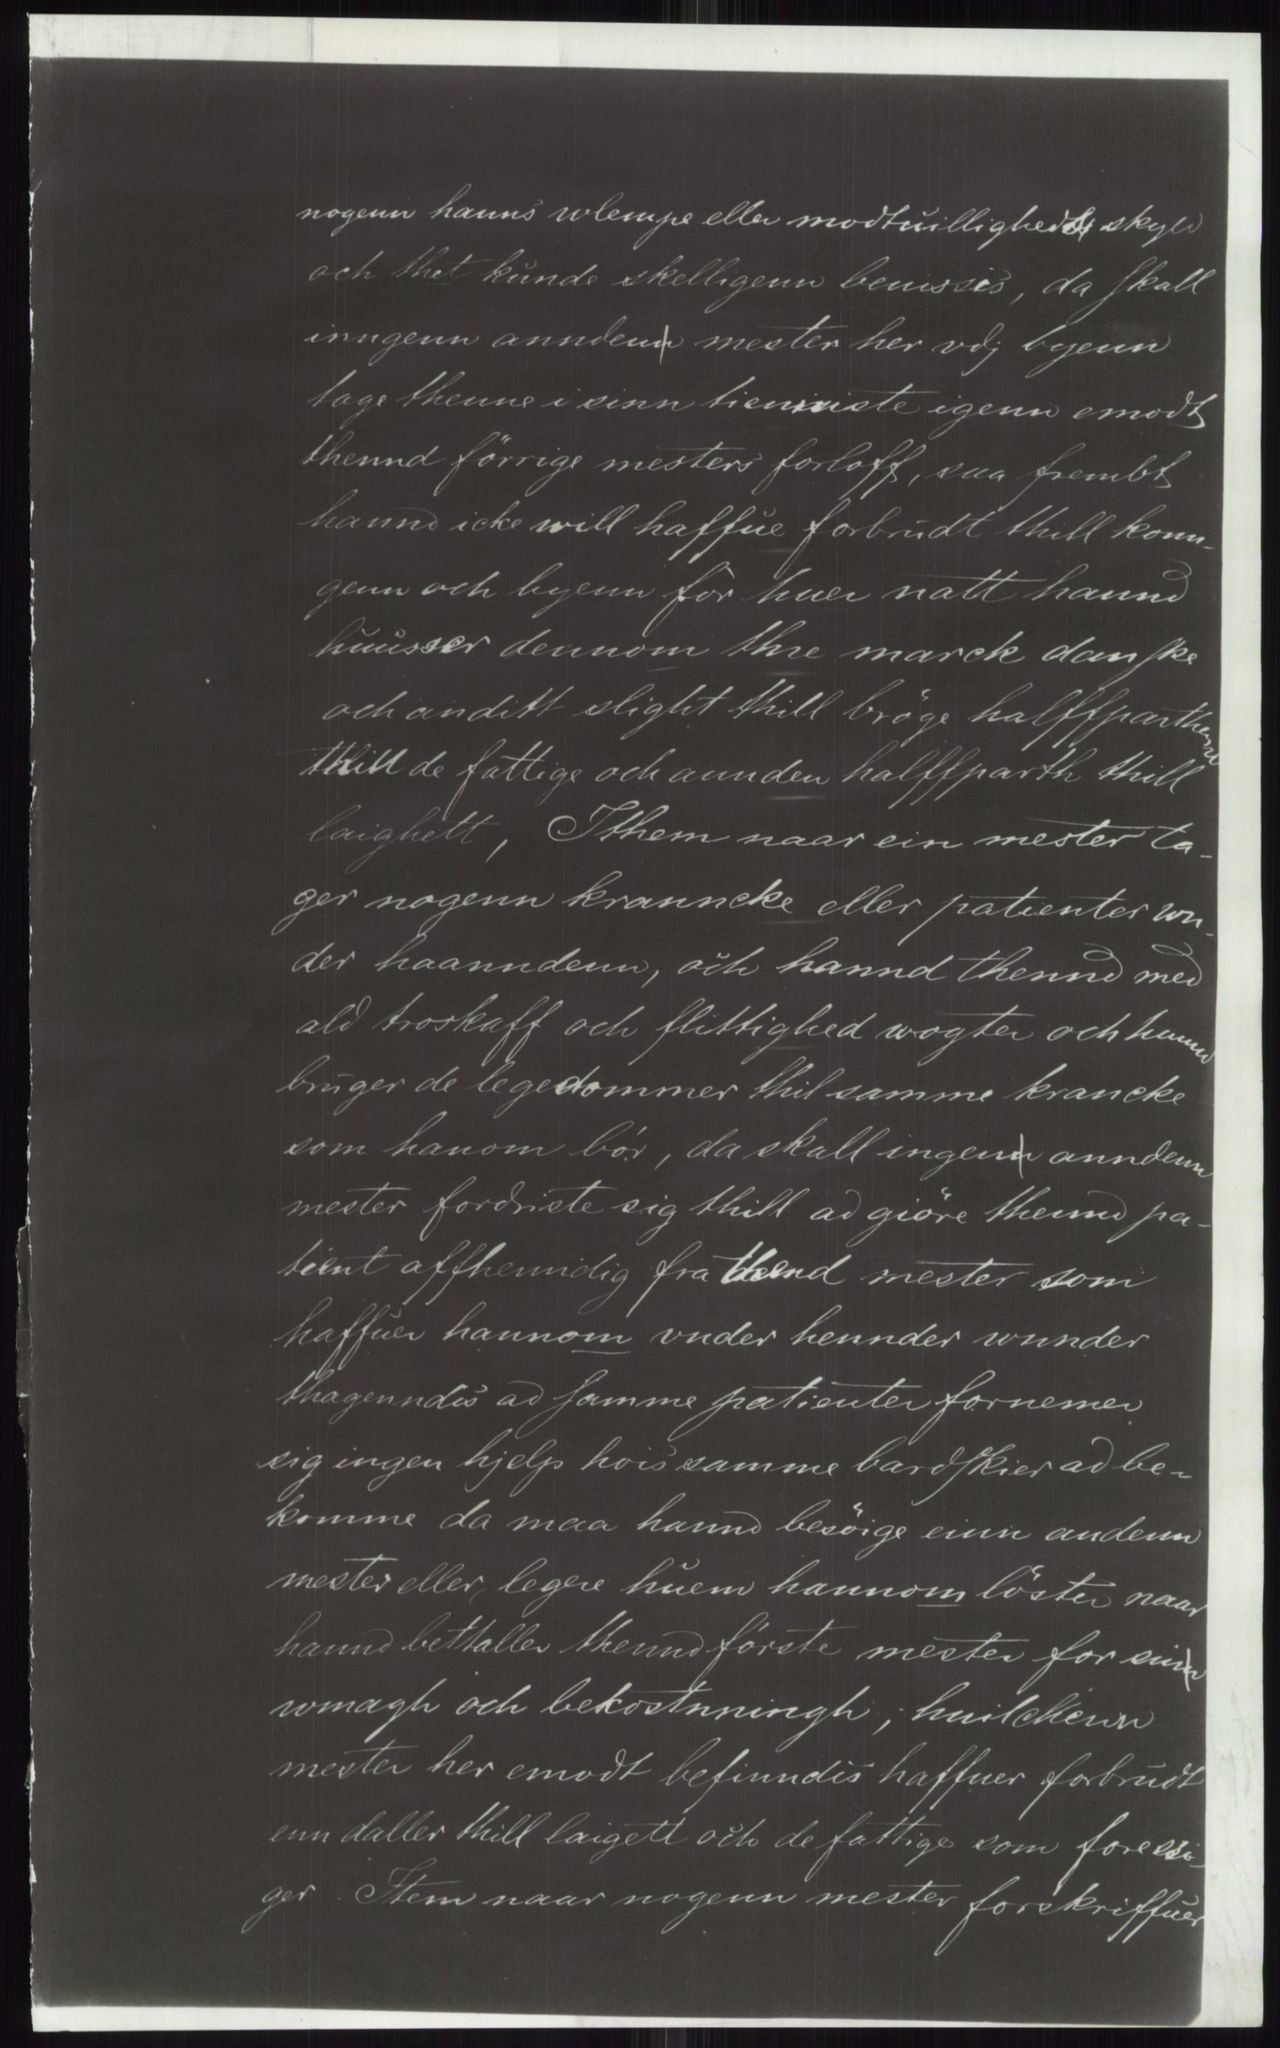 nogenn hanns wlempe eller modtuillighedtz skyld
och thet kunde skelligenn beuissis, da skall
inngenn anndenn mester her vdj byenn
tage thenne i sinn tienniste igenn emodt
thennd förrige mesters forloff, saa frembt
hannd icke will haffue forbrudt thill konn-
genn och byenn for huer natt hannd
huusser dennom thre marck danske
och anditt slight thill bröge halffparthenn
thill de fattige och annden halffparth thill
laighett, Ithem naar ein mester ta-
ger nogenn kranncke eller patienter wn-
der haanndenn, och hannd thennd med
ald troskaff och flittighed wogter och hannd
bruger de legedommer thil samme krancke
som hanom bör, da skall ingenn anndenn
mester fordriste sig thill ad giöre thennd pa-
tient affhenndig fra thend mester som
haffuer hannom vnder hennder wnnder
thagenndis ad samme patienter fornemer
sig ingen hjelp hois samme bardskier ad be-
komme da maa hannd besöige einn andenn
mester eller legere huem hannom löster naar
hannd bettaller thennd förste mester for sinn
wmagh och bekostnningh, huilckenn
mester her emodt befinndis haffuer forbrudt
enn daller thill laigett och de fattige som foresi-
ger. Item naar nogenn mester forskriffuer